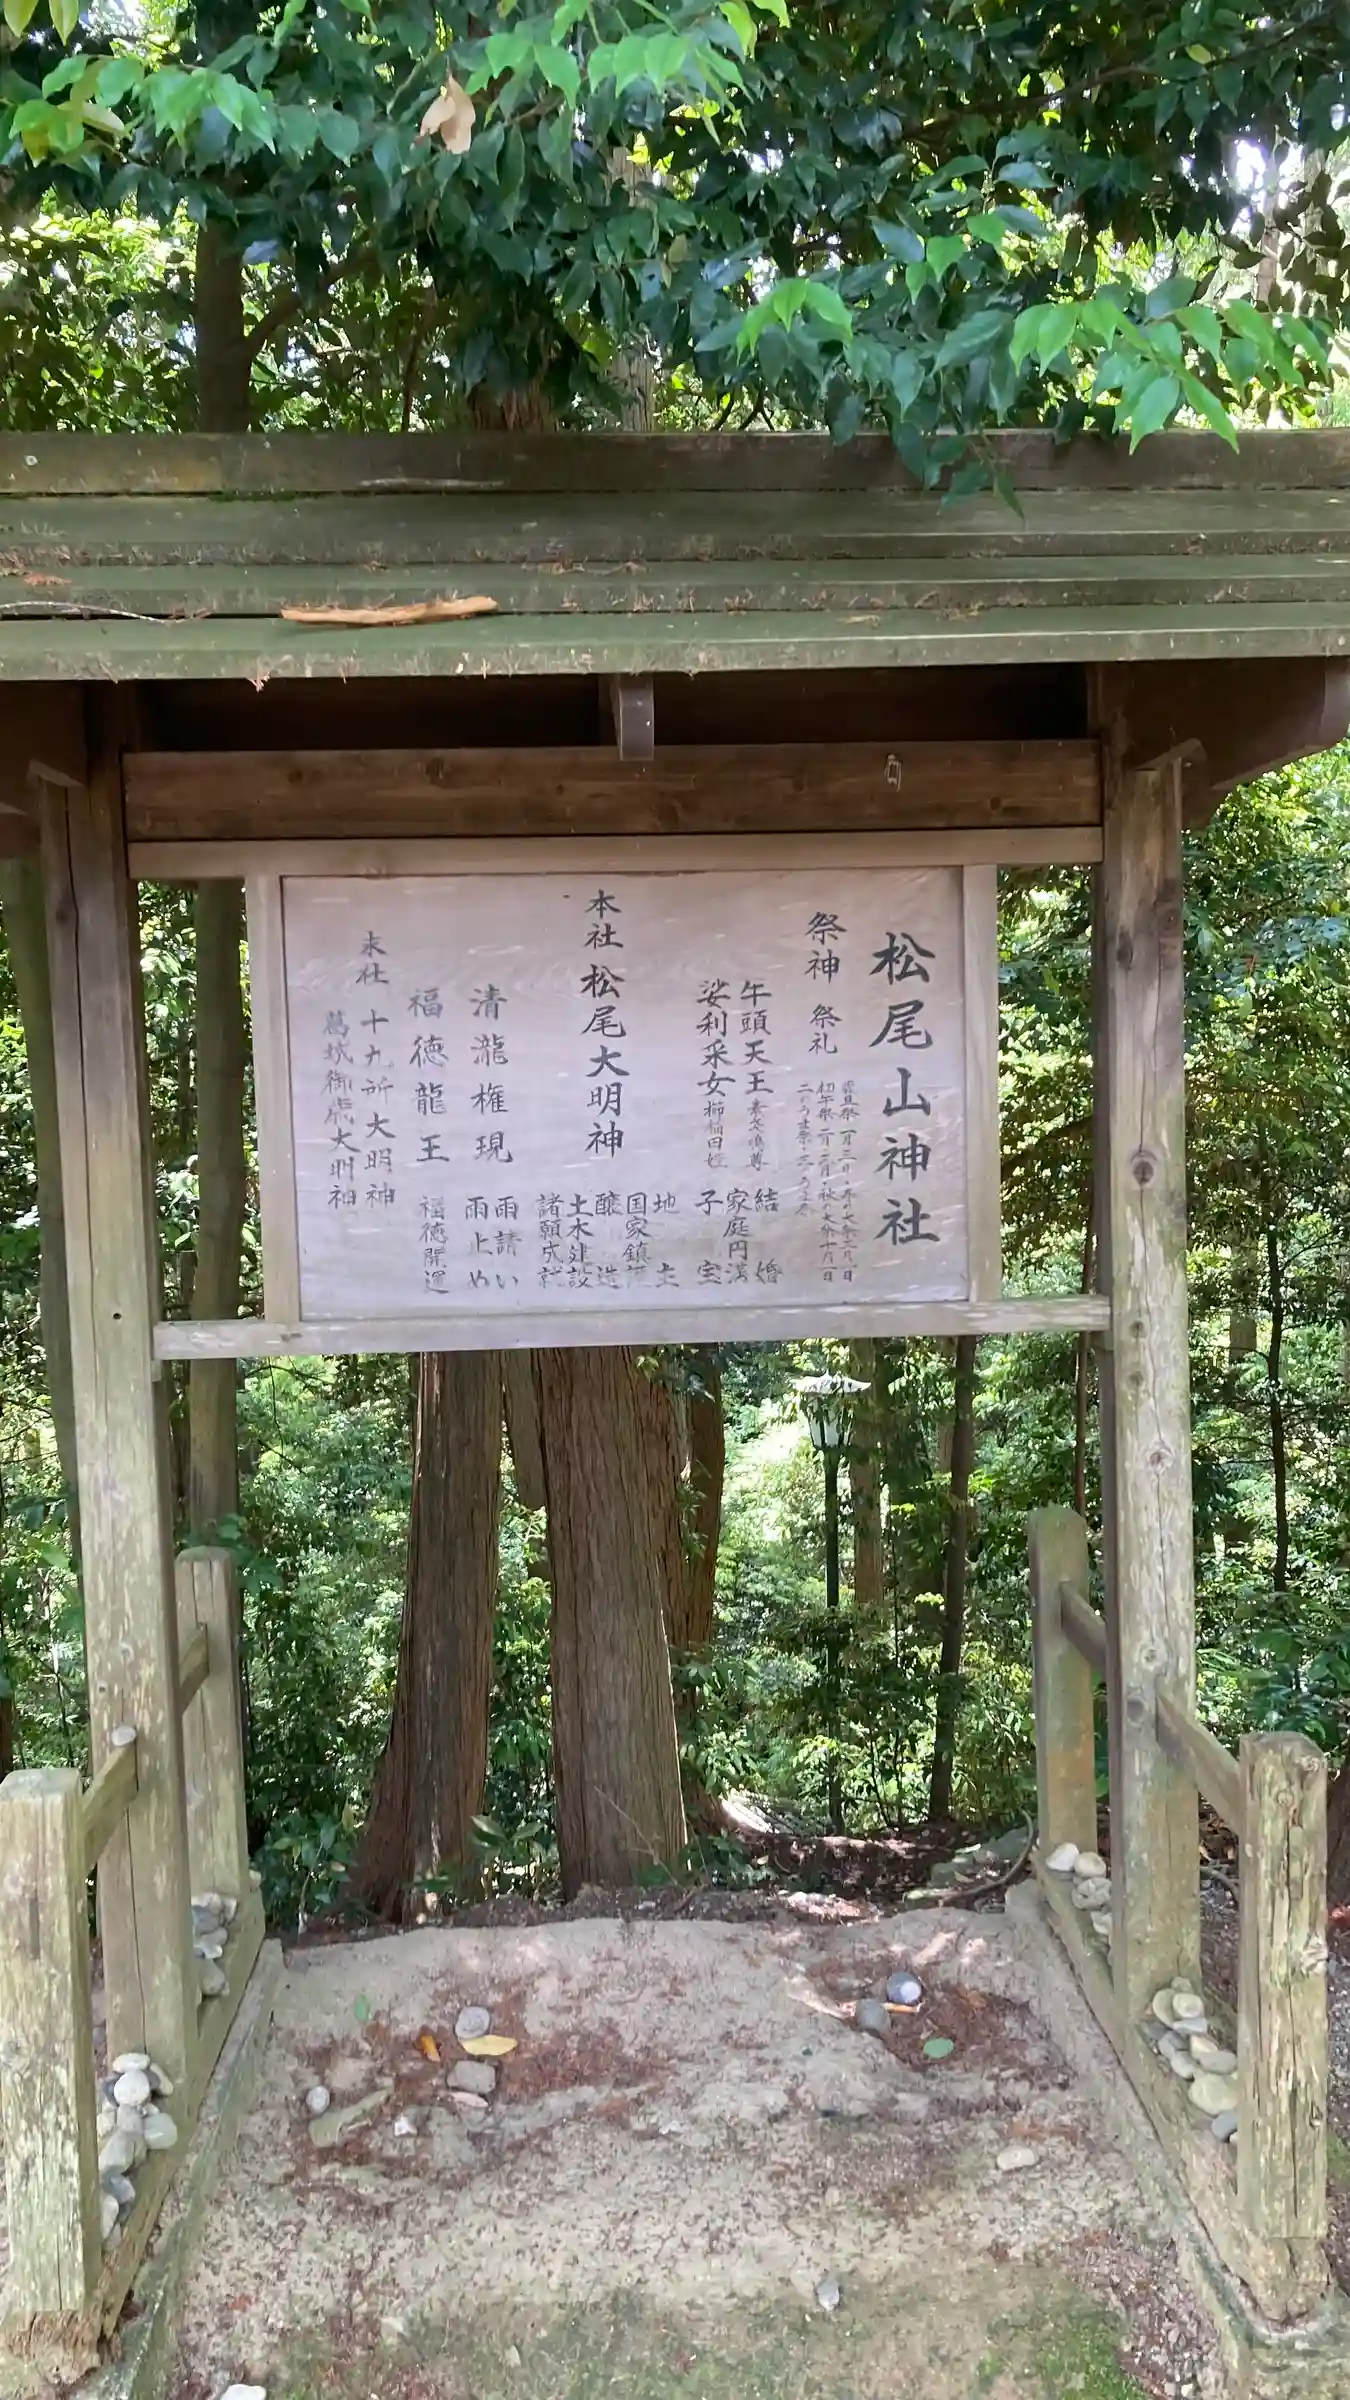 松尾山神社
祭神 祭礼
歳旦祭 一月三日・春の大祭三月一日
初午祭 二月二の午・秋の大祭十月一日
牛頭天王 素戔嗚尊 結婚
家庭円満
娑利采女 櫛稲田姫 子宝
本社 松尾大明神
地主
国家鎮護
醸造
土木建設
諸願成就
清瀧権現 雨請い
雨止め
福徳龍王 福徳開運
末社 十九所大明神
葛城御歳大明神